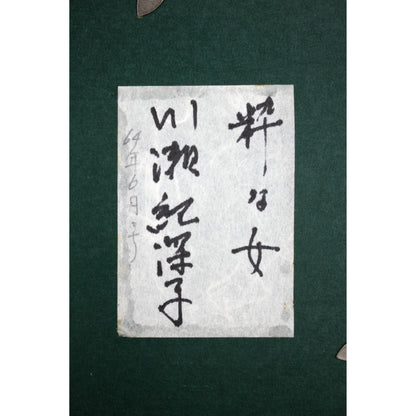 粋な女
川瀬紀深子
64年6月号